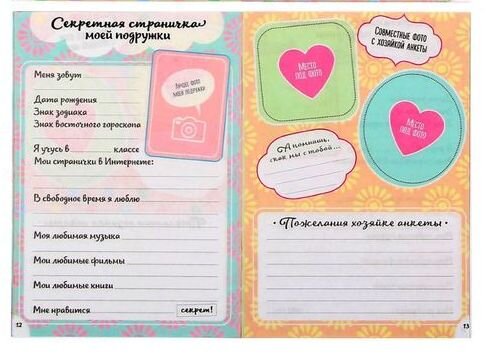 Секретная страничка
моей подружки
Меня зовут
Дата рождения
Знак зодиака
Знак восточного гороскопа
Я учусь в классе
Мои странички в Интернете:
В свободное время я люблю
Моя любимая музыка
Мои любимые фильмы
Мои любимые книги
Мне нравится секрет!
12
фото
моей подружки
Место
под фото
Совместные фото
с хозяйкой анкеты
Место
под фото
А помнишь,
как мы с тобой...
Пожелания хозяйке анкеты
13